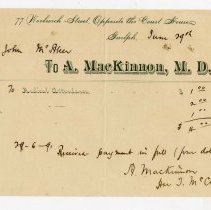 77 Woolwich Street Opposite the Court House
Guelph, June 29th
John McAteer
To A. MacKinnon, M. D.
To Medical Attendance $ 1 00
2 00
1 00
$ 4 00
29-6-91 Received payment in full (four dol
A MacKinnon